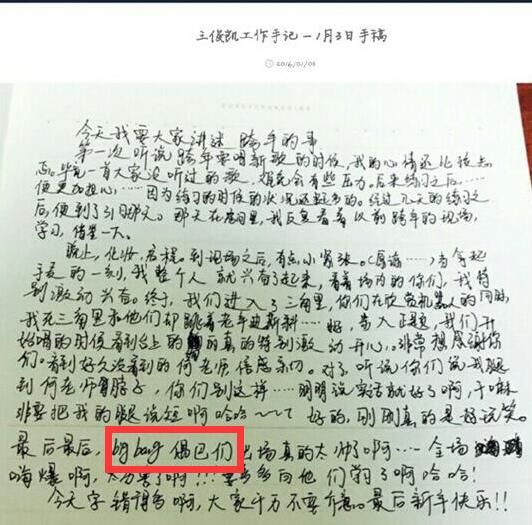 王俊凯工作手记—1月3日手稿
2016/01/03
今天我要大家讲述 跨年的事
第一次听说跨年要唱新歌的时候,我的心情还比较忐
忑。毕竟一首大家没听过的歌,难免会有些压力。后来练习之后……
便更加担心……因为练习的时候的状况还挺多的。经过几天的练习之
后,便到了31那天。那天在房间里,我反复看着以前跨年的现场,
学习,借鉴一下。
晚上,化妆,启程。到现场之后,有点小紧张。(厚嘻……)当拿起
手麦的一刻,我整个人就兴奋了起来,看着场内的你们,我特
别激动 兴奋。终于,我们进入了三角里,你们在欣赏机器人的同时,
我在三角里和他们却跳着老年迪斯科……好,导入正题,我们开
始唱的时候看到台上的 真的特别激动 开心,非常想感谢你
们。看到好久没看到的何老师倍感亲切。对了,听说你们说我腿
到何老师脖子,你们别这样……明明说实话就好了啊,干嘛
非要把我的腿说短啊哈哈~~~ 好的,刚刚真的是好说笑。
最后最后,big bang 偶巴们 出场真的太帅了啊…全场
嗨爆啊,太厉害了!!! 要多多向他们学习了啊哈哈!
今天字 错得多啊,大家千万不要介意。最后新年快乐!!